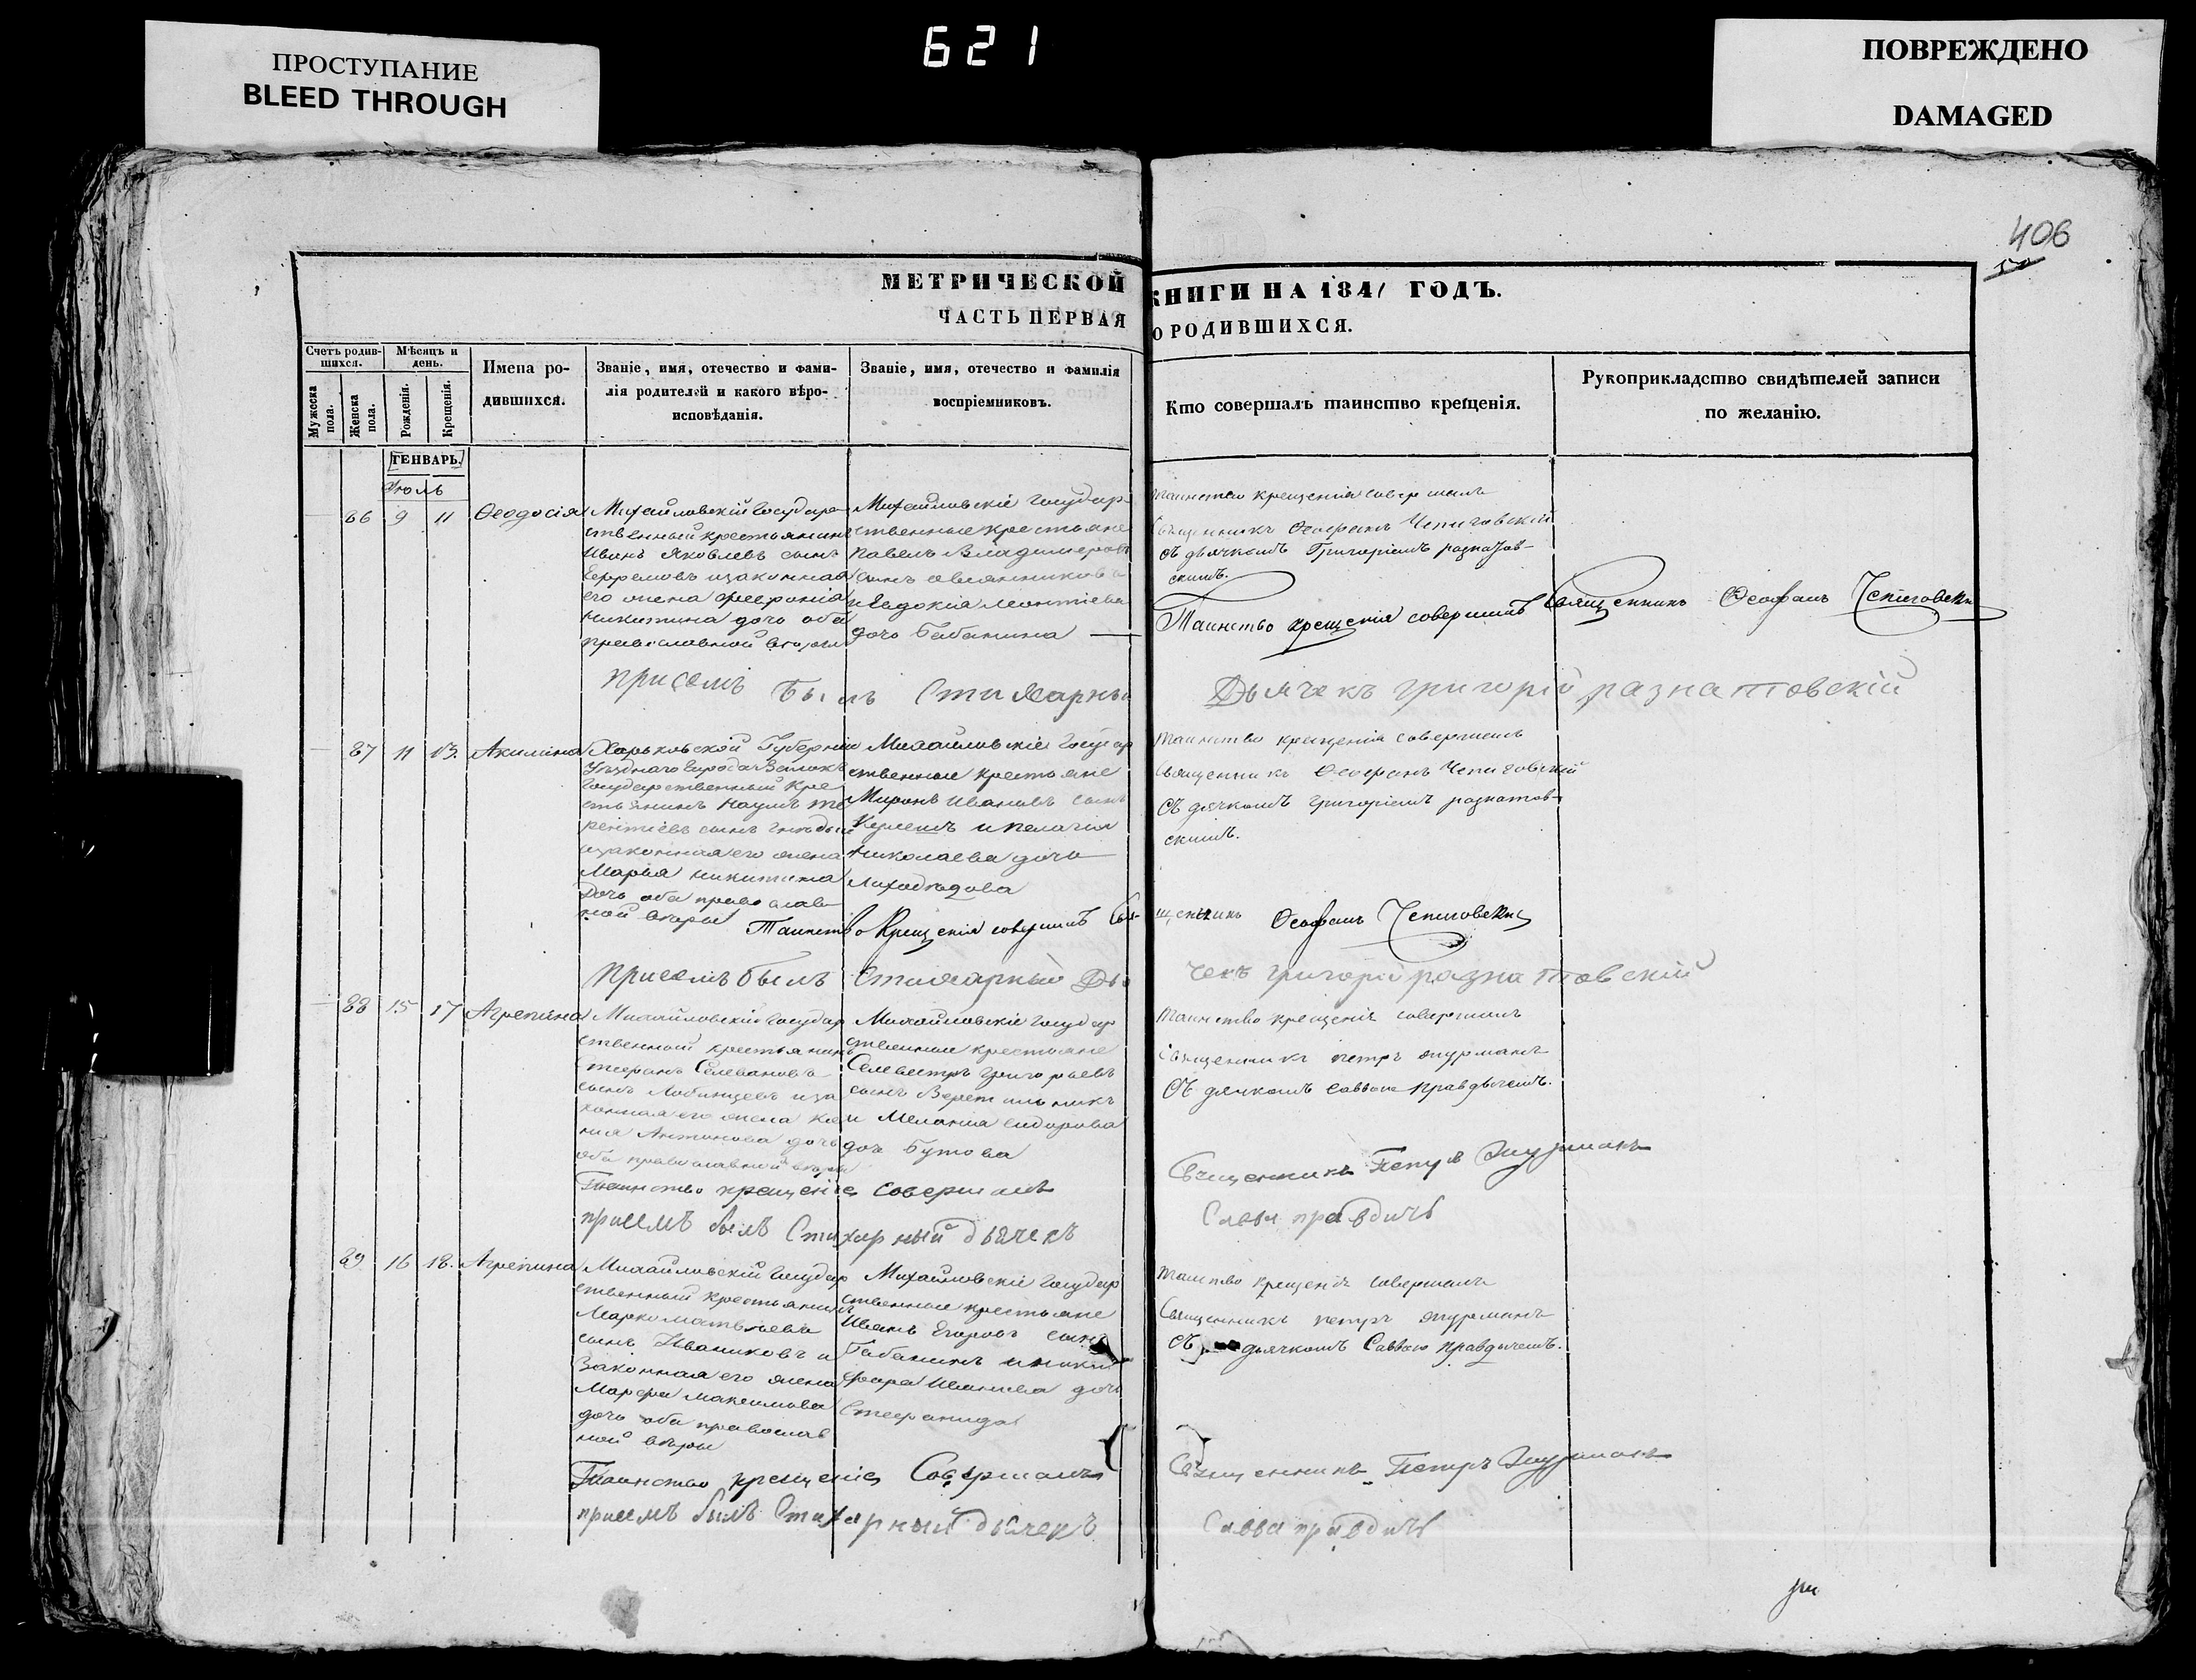 ПРОСТУПАНИЕ
BLEED THROUGH
621
ПОВРЕЖДЕНО
DAMAGED
406
МЕТРИЧЕСКОЙ КНИГИ НА 1841 ГОДЪ.
ЧАСТЬ ПЕРВАЯ О РОДИВШИХСЯ.
Счетъ родив-
шихся.
Мужеска
пола.
Женска
пола.
Мѣсяцъ и
день.
Рожденія.
Крещенія.
Имена ро-
дившихся.
Званіе, имя, отечество и фами-
лія родителей и какого вѣро-
исповѣданія.
Званіе, имя, отечество и фамилія
воспріемниковъ.
Кто совершалъ таинство крещенія.
Рукоприкладство свидѣтелей записи
по желанію.
ГЕНВАРЬ.
Июль
86 9 11 Ѳеодосія
Михайловскій Государ
ственный крестьянинъ
Иванъ Яковлевъ сынъ
Ефремовъ изаконная
его жена Феѳронія
Никитина дочь оба
православной вѣры
Михайловскіе Государ
ственные крестьяне
Павелъ Владимеровъ
сынъ Овсянниковъ
и Евдокія Леонтіева
дочь Бабанина
таинство крещенія совершалъ
Священникъ Ѳеофанъ Чепиговскій
съ дьячкомъ Григоріемъ разнатов-
скимъ.
Таинство крещенія совершилъ Священникъ Ѳеофанъ Чепиговскій
присемъ былъ Стихарный Дьячекъ григорій разнатовскій
87 11 13. Акилина
Харьковской Губерніи
Уѣзднаго города Валокъ
Государственный кре
стьянинъ Наумъ Те
рентіевъ сынъ
изаконная его жена
Марья никитина
Дочь оба православ
ной вѣры
Михайловскіе Государ
ственные крестьяне
Миронъ Ивановъ сынъ
Кулешъ и пелагия
Николаева дочь
Лиходѣдова
таинство крещенія совершалъ
Священникъ Ѳеофанъ Чепиговскій
Съ дячкомъ григоріемъ разнатов-
скимъ.
Таинство Крещенія совершилъ Священникъ Ѳеофанъ Чепиговскій
присемъ былъ Стихарный Дьячекъ григорій разнатовскій
88 15 17 Агрепина
Михайловскій Государ
ственный крестьянинъ
Стефанъ Селевановъ
сынъ Лобинцевъ иза
конная его жена Ксе
ния Антонова дочь
оба православной вѣры
Михайловскіе Государ
ственные крестьяне
Селвестръ Григорьевъ
сынъ Веретильникъ
и Меланія Сидорова
доч Бутова
таинство крещенія совершалъ
священникъ петръ
Съ дячкомъ Саввою правдичемъ.
Таинство крещенія совершалъ Священникъ Петръ
присемъ былъ Стихарный дьячекъ Савва правдичъ
89 16 18. Агрепина
Михайловскій Государ
ственный крестьянинъ
Марко матвѣевъ
сынъ Иваниковъ и
Законная его жена
Марфа максимова
дочь оба православ
ной вѣры
Михайловскіе Государ
ственные крестьяне
Иванъ Егоровъ сынъ
Бабанинъ иники
фора Иванова дочь
Стефанида
таинство крещенія совершалъ
Священникъ петръ
Съ дьячкомъ Саввою правдичемъ.
Таинство крещенія Совершалъ Священникъ Петръ
присемъ былъ Стихарный дьячекъ Савва правдичъ